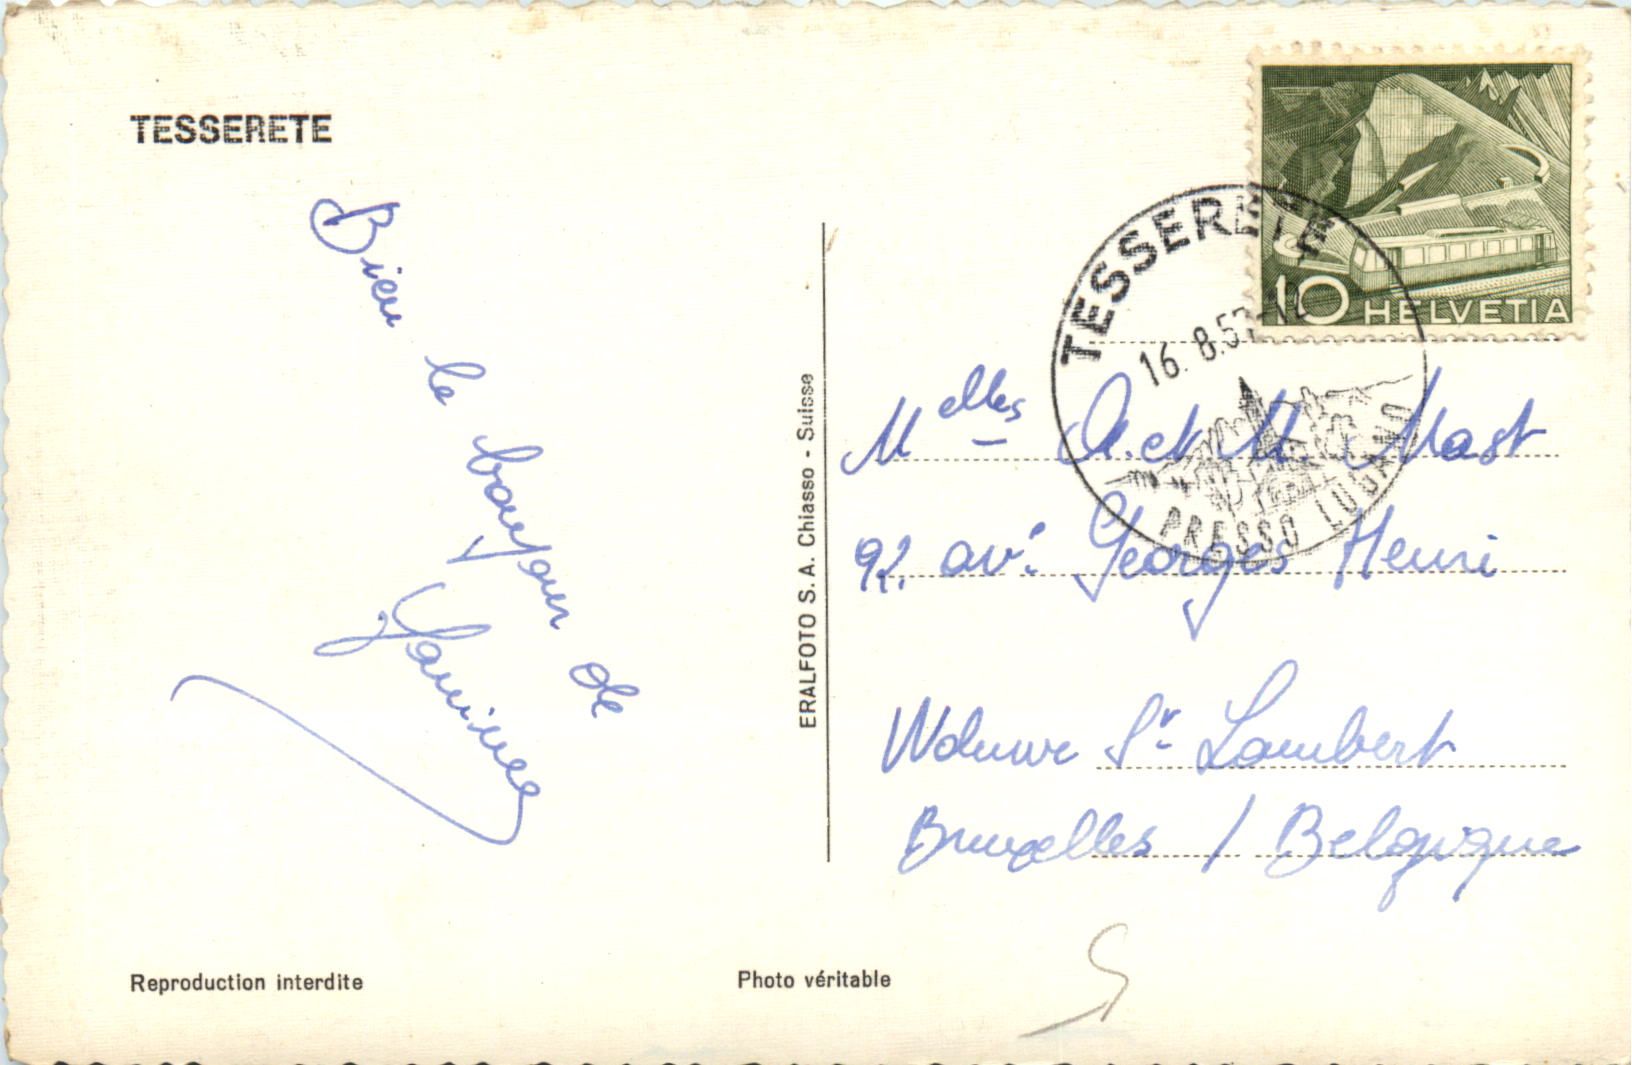 TESSERETE
Bien le bonjour de
Janine
Reproduction interdite
Photo véritable
ERALFOTO S.A. Chiasso - Suisse
10 HELVETIA
TESSERETE
16. 8.57-12
PRESSO LUGANO
Melles A. et M. Mast
92. av. Georges Henri
Woluwe St. Lambert
Bruxelles / Belgique